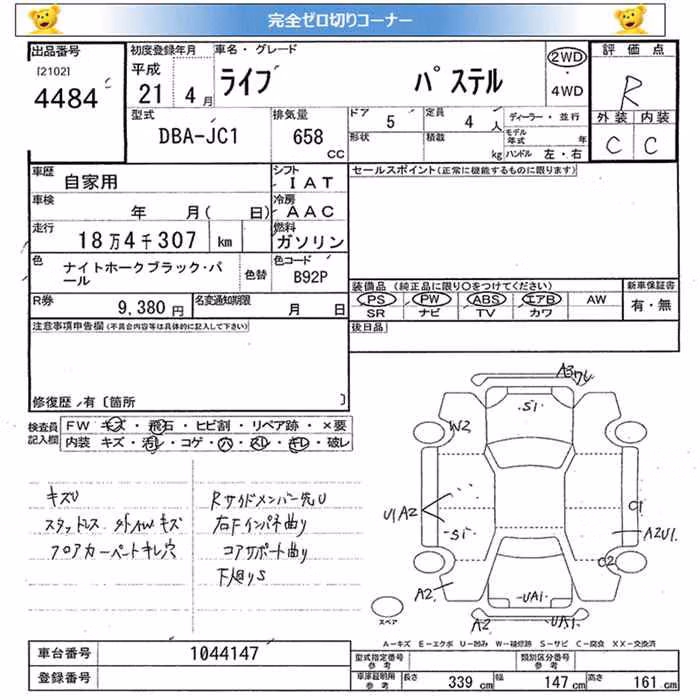 完全ゼロ切りコーナー
出品番号
[2102]
4484
初度登録年月
平成
21 4月
車名・グレード
ライフ パステル
2WD
4WD
評価点
R
外装 内装
C C
型式
DBA-JC1
排気量
658
CC
ドア 5
定員 4 人
形状
積載 kg
ディーラー・並行
モデル年式 年
ハンドル 左・右
車歴
自家用
シフト
IAT
車検
年 月( 日)
冷房
AAC
走行
18万4千307 km
燃料
ガソリン
色
ナイトホークブラック・パール
色替
色コード
B92P
R券
9,380円
名変通知期限
月 日
セールスポイント(正常に機能するものに限ります)
装備品(純正品に限り○をつけてください)
PS PW ABS エアB AW
SR ナビ TV カワ
新車保証書
有・無
後日品
注意事項申告欄(不具合内容等は具体的に記入して下さい)
修復歴・有〔箇所 〕
検査員記入欄
FW キズ・飛石・ヒビ割・リペア跡・×要
内装 キズ・汚レ・コゲ・穴・スレ・キレ・破レ
キズU
スタットレス 外AWキズ
フロアカーペットキレ穴
Rサイドメンバー先U
右Fインパネ曲り
コアサポート曲り
下廻りS
A3ワレ
S1
W2
U1A2
S1
C1
A2U1
C2
A2
UA1
A2
UA51
スペア
A-キズ E-エクボ U-凹み W-補修跡 S-サビ C-腐食 XX-交換済
車台番号 1044147
登録番号
型式指定番号 参考
類別区分番号 参考
車庫証明用 参考
長さ 339 cm 幅 147 cm 高さ 161 cm